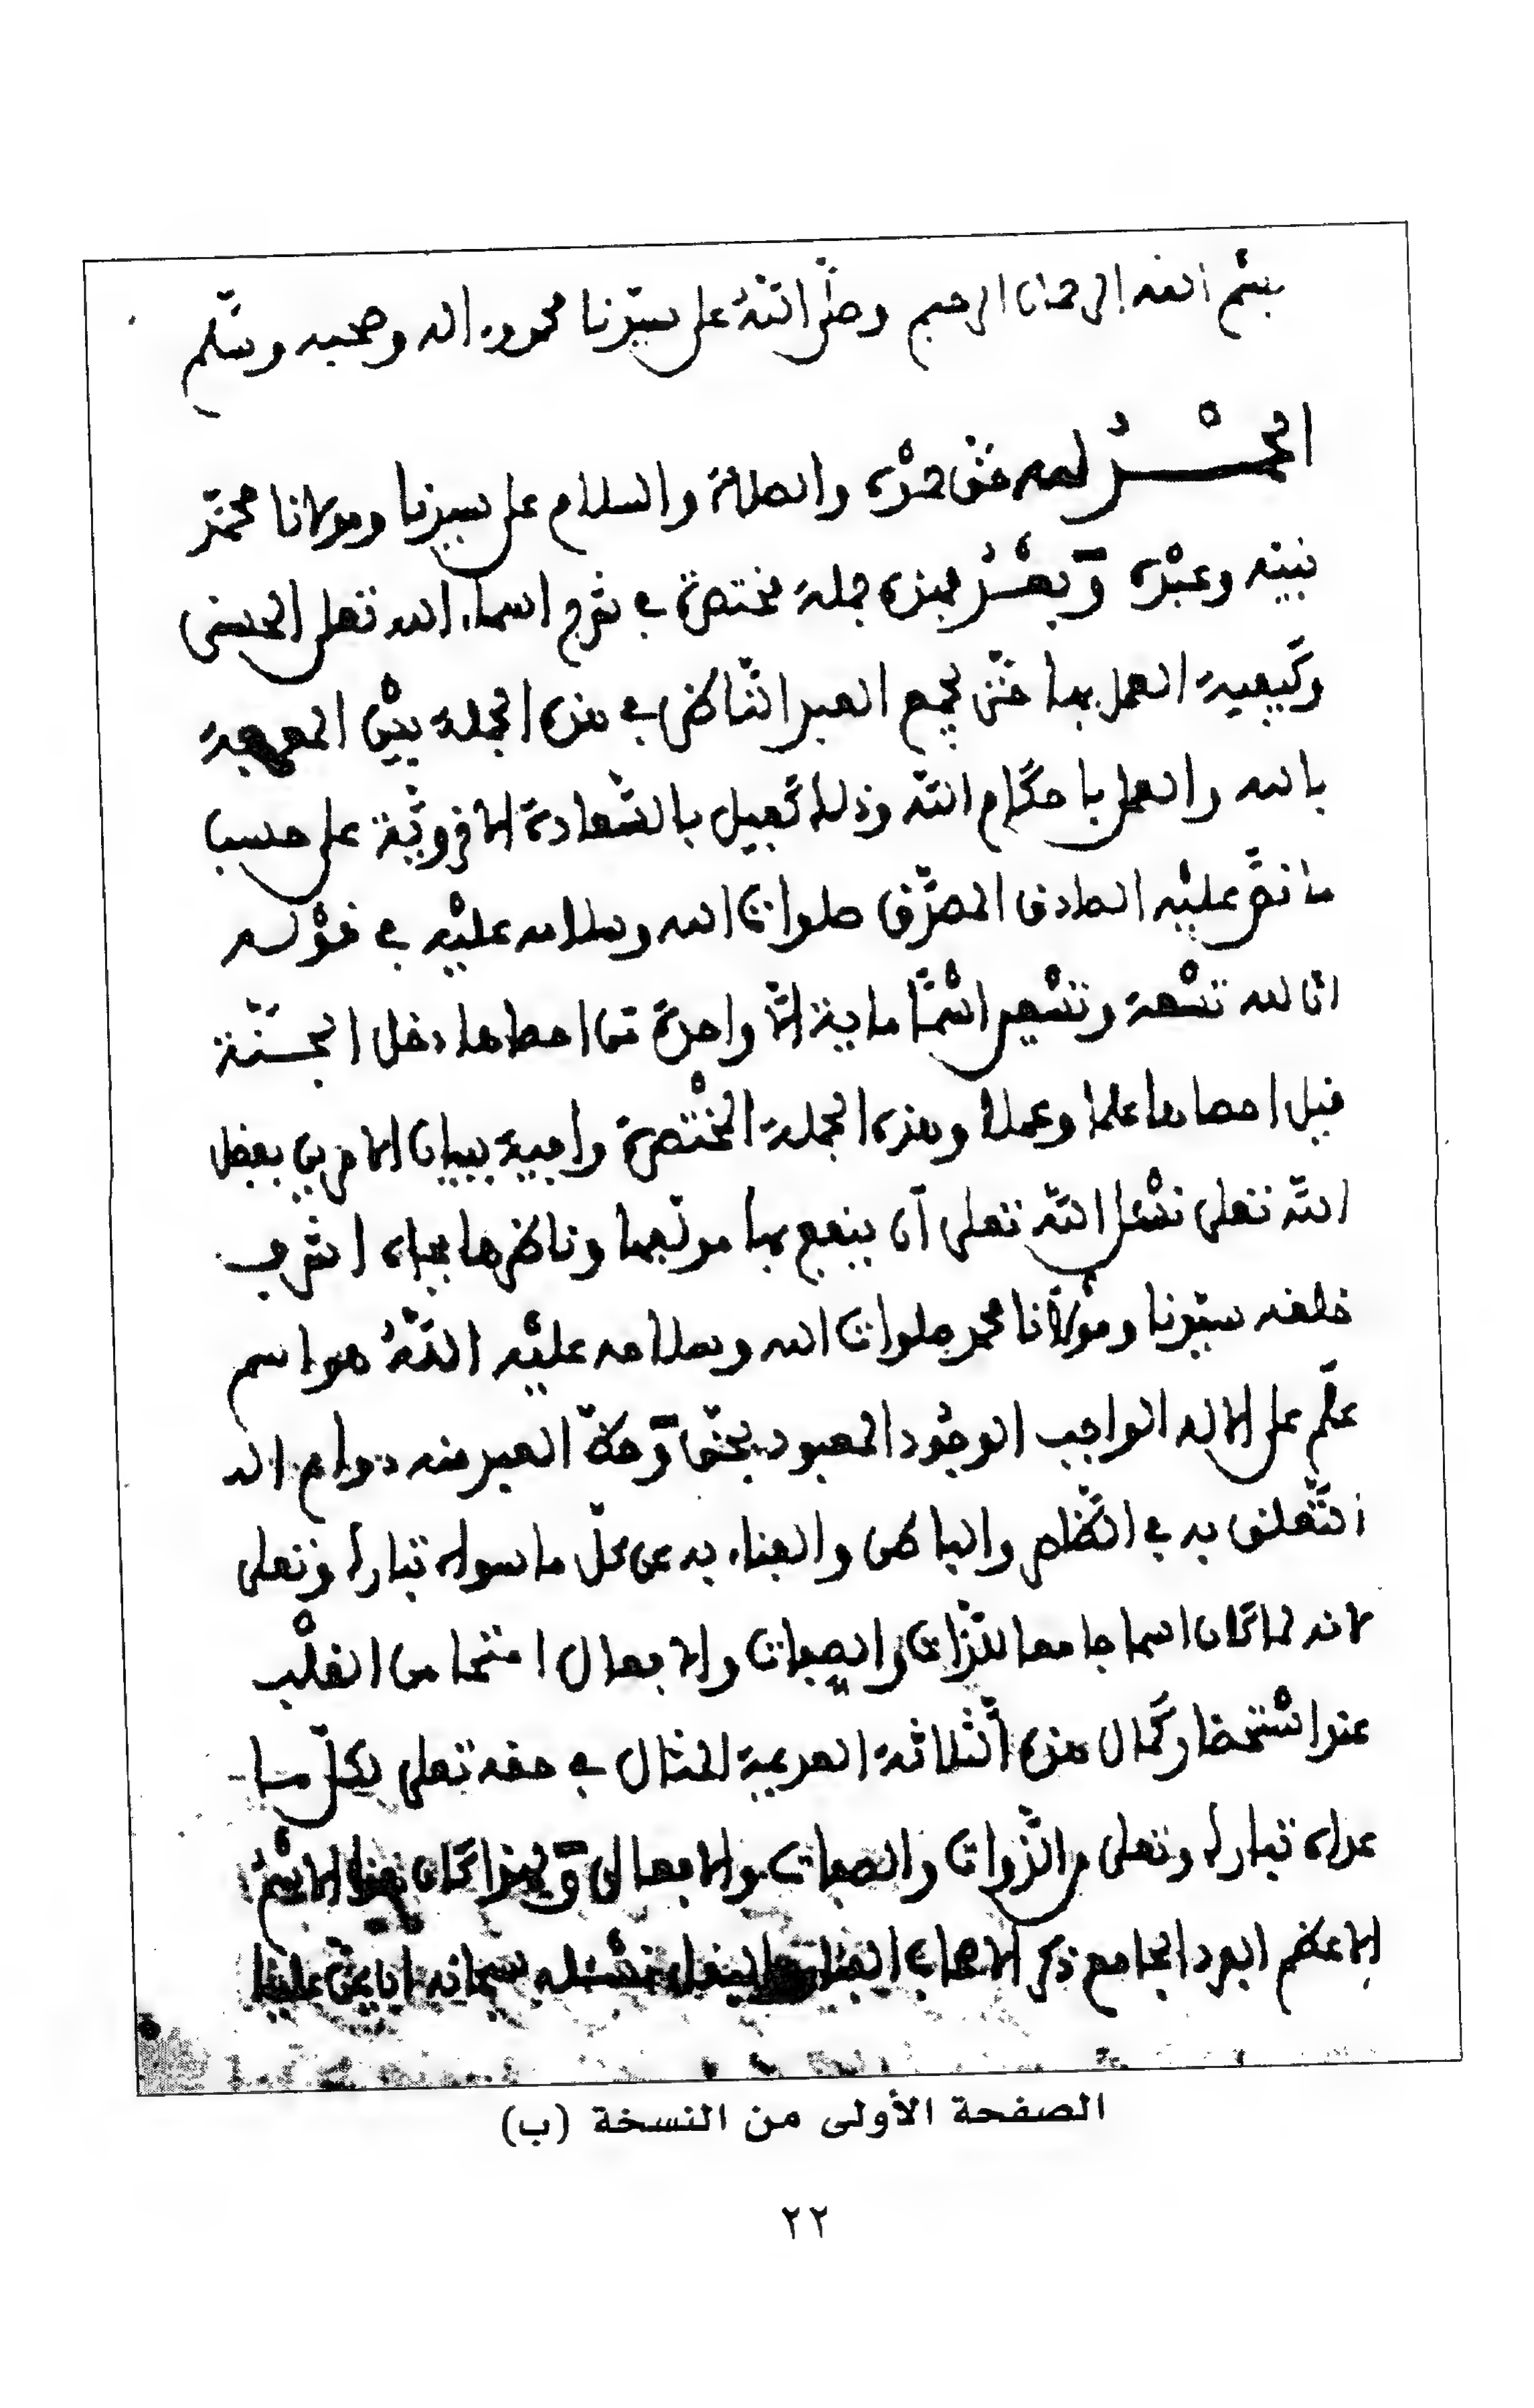 بسم الله الرحمان الرحيم وصلى الله على سيدنا محمد وءاله وصحبه وسلم
الحمد لله حق حمده والصلاة والسلام على سيدنا ومولانا محمد
نبيه وعبده وبعد فهذه جملة مختصرة في شرح اسماء الله تعلى الحسنى
وكيفية العمل بها حتى يجمع العبد الناظر في هذه الجملة بين المعرفة
بالله والعمل باحكام الله وذلك كفيل بالسعادة الاخروية على حسب
ما نص عليه الصادق المصدق صلوات الله وسلامه عليه في قوله
ان لله تسعة وتسعين اسما ماية الا واحدة من احصاها دخل الجنة
قيل احصاها علما وعملا وهذه الجملة المختصرة وافية ببيان الامرين بفضل
الله تعلى نسئل الله تعلى أن ينفع بها مولفها وناظرها بجاه اشرف
خلقه سيدنا ومولانا محمد صلوات الله وسلامه عليه الله هو اسم
علم على الاله الواجب الوجود المعبود بحق وحظ العبد منه دوام الـ
التعلق به في الظاهر والباطن والفناء به عن كل ما سواه تبارك وتعلى
لانه لما كان اسما جامعا للذات والصفات والافعال امتحا من القلب
عند استحضار كمال هذه الثلاثة العديمة المثال في حقه تعلى لكل ما
عداه تبارك وتعلى من الذوات والصفات والافعال ولهذا كان هذا الاسم
الاعظم الفرد الجامع ذكر الاصحاب نسئله سبحانه ان يمن علينا
الصفحة الأولى من النسخة (ب)
٢٢